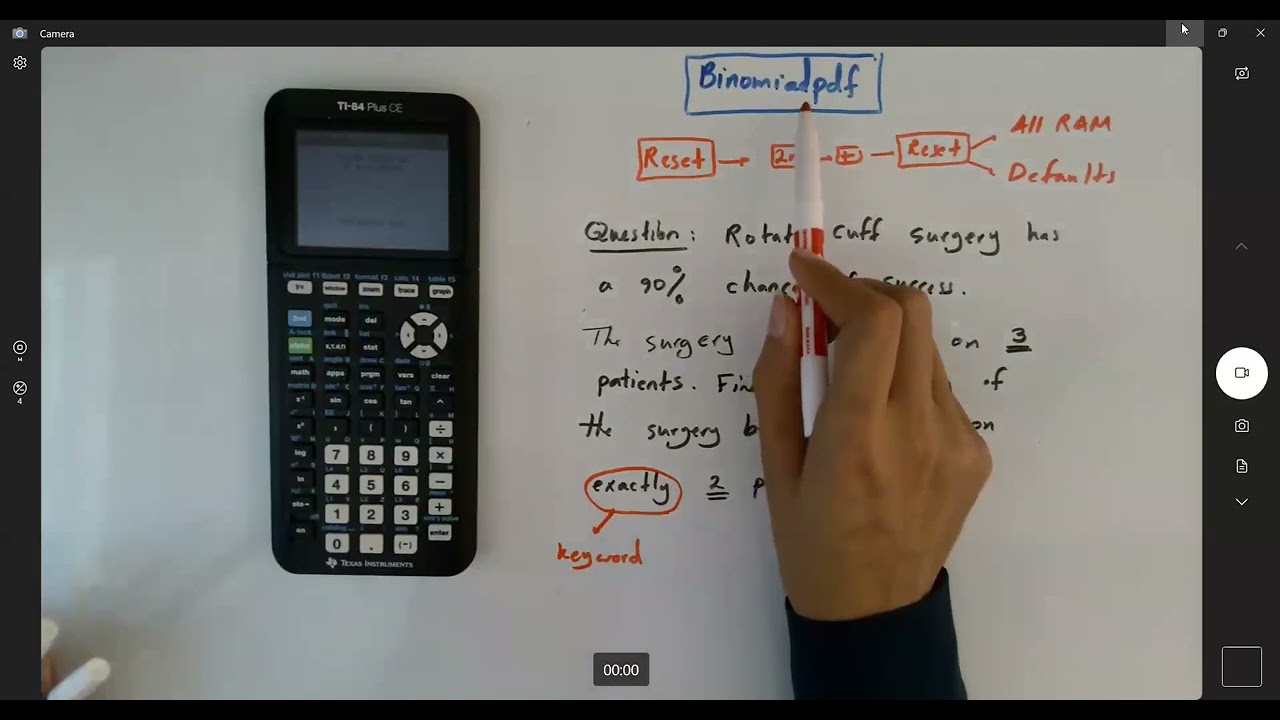 Camera
Binomialpdf
TI-84 Plus CE
Reset
Reset
All RAM
Defaults
Question: Rotat cuff surgery has
a 90% chanc success.
The surgery on 3
patients. of
the surgery on
exactly 2
keyword
stat plot f1 tblset f2 format f3 calc f4 table f5
y= window zoom trace graph
2nd mode del
alpha x,t,θ,n stat
math apps prgm vars clear
sin cos tan ^
x² , ( ) ÷
log 7 8 9 ×
ln 4 5 6 −
sto→ 1 2 3 +
on 0 . (−) enter
TEXAS INSTRUMENTS
00:00